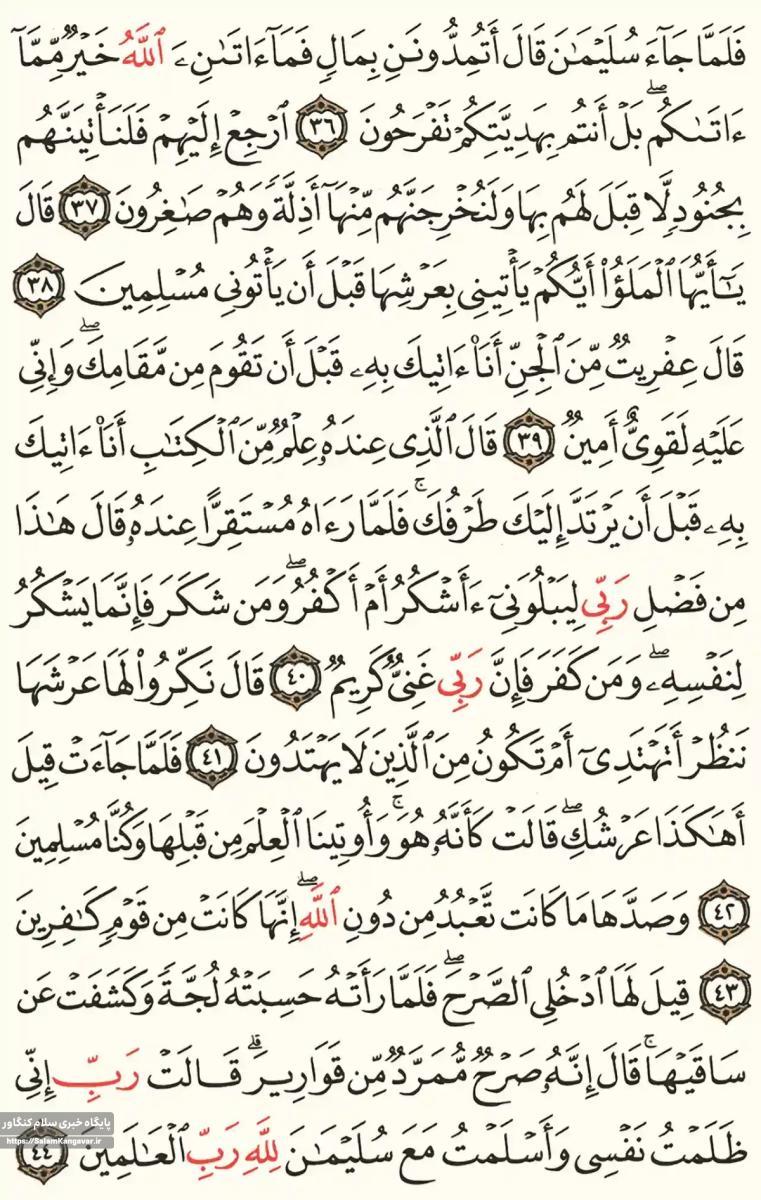 فَلَمَّا جَآءَ سُلَيْمَٰنَ قَالَ أَتُمِدُّونَنِ بِمَالٍ فَمَآ ءَاتَىٰنِۦَ ٱللَّهُ خَيْرٌ مِّمَّآ
ءَاتَىٰكُمۖ بَلْ أَنتُم بِهَدِيَّتِكُمْ تَفْرَحُونَ ٣٦ ٱرْجِعْ إِلَيْهِمْ فَلَنَأْتِيَنَّهُم
بِجُنُودٍ لَّا قِبَلَ لَهُم بِهَا وَلَنُخْرِجَنَّهُم مِّنْهَآ أَذِلَّةً وَهُمْ صَٰغِرُونَ ٣٧ قَالَ
يَٰٓأَيُّهَا ٱلْمَلَؤُا۟ أَيُّكُمْ يَأْتِينِى بِعَرْشِهَا قَبْلَ أَن يَأْتُونِى مُسْلِمِينَ ٣٨
قَالَ عِفْرِيتٌ مِّنَ ٱلْجِنِّ أَنَا۠ ءَاتِيكَ بِهِۦ قَبْلَ أَن تَقُومَ مِن مَّقَامِكَۖ وَإِنِّى
عَلَيْهِ لَقَوِىٌّ أَمِينٌ ٣٩ قَالَ ٱلَّذِى عِندَهُۥ عِلْمٌ مِّنَ ٱلْكِتَٰبِ أَنَا۠ ءَاتِيكَ
بِهِۦ قَبْلَ أَن يَرْتَدَّ إِلَيْكَ طَرْفُكَۚ فَلَمَّا رَءَاهُ مُسْتَقِرًّا عِندَهُۥ قَالَ هَٰذَا
مِن فَضْلِ رَبِّى لِيَبْلُوَنِىٓ ءَأَشْكُرُ أَمْ أَكْفُرُۖ وَمَن شَكَرَ فَإِنَّمَا يَشْكُرُ
لِنَفْسِهِۦۖ وَمَن كَفَرَ فَإِنَّ رَبِّى غَنِىٌّ كَرِيمٌ ٤٠ قَالَ نَكِّرُوا۟ لَهَا عَرْشَهَا
نَنظُرْ أَتَهْتَدِىٓ أَمْ تَكُونُ مِنَ ٱلَّذِينَ لَا يَهْتَدُونَ ٤١ فَلَمَّا جَآءَتْ قِيلَ
أَهَٰكَذَا عَرْشُكِۖ قَالَتْ كَأَنَّهُۥ هُوَۚ وَأُوتِينَا ٱلْعِلْمَ مِن قَبْلِهَا وَكُنَّا مُسْلِمِينَ
٤٢ وَصَدَّهَا مَا كَانَت تَّعْبُدُ مِن دُونِ ٱللَّهِۖ إِنَّهَا كَانَتْ مِن قَوْمٍ كَٰفِرِينَ
٤٣ قِيلَ لَهَا ٱدْخُلِى ٱلصَّرْحَۖ فَلَمَّا رَأَتْهُ حَسِبَتْهُ لُجَّةً وَكَشَفَتْ عَن
سَاقَيْهَاۚ قَالَ إِنَّهُۥ صَرْحٌ مُّمَرَّدٌ مِّن قَوَارِيرَۗ قَالَتْ رَبِّ إِنِّى
ظَلَمْتُ نَفْسِى وَأَسْلَمْتُ مَعَ سُلَيْمَٰنَ لِلَّهِ رَبِّ ٱلْعَٰلَمِينَ ٤٤
پایگاه خبری سلام کنگاور
https://SalamKangavar.ir